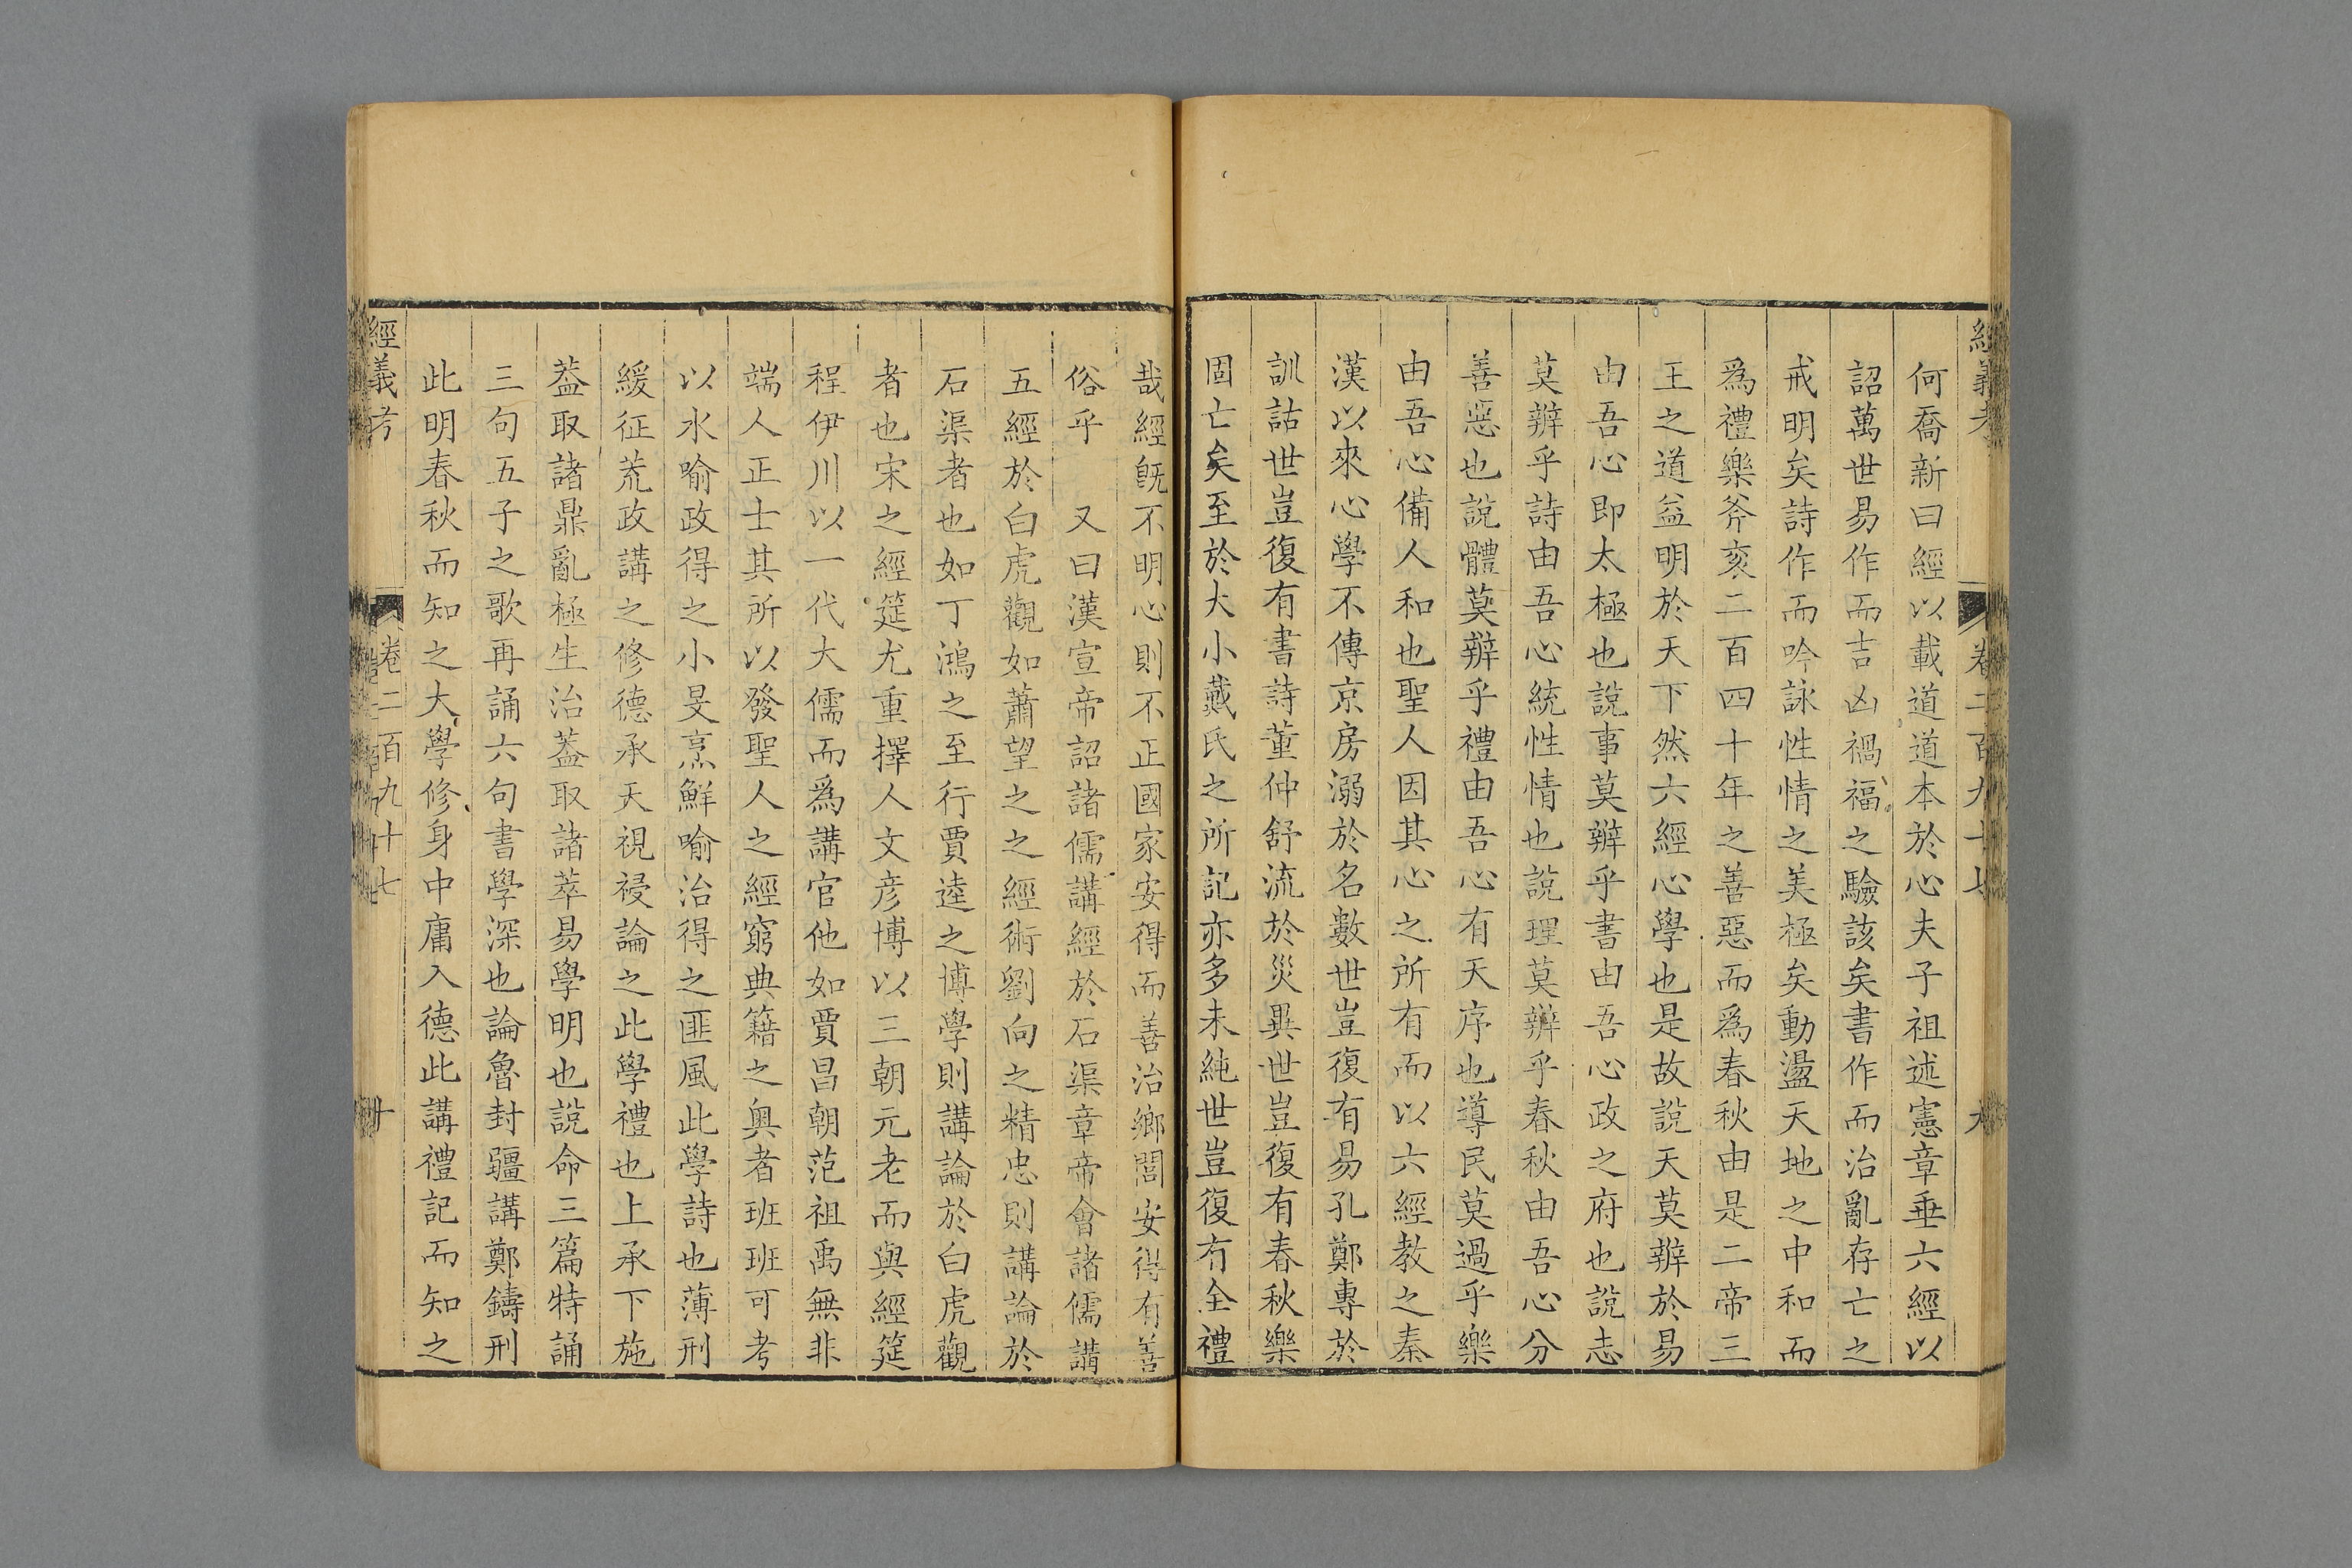 經義考 卷二百九十七 九
何喬新曰經以載道道本於心夫子祖述憲章垂六經以
詔萬世易作而吉凶禍福之驗該矣書作而治亂存亡之
戒明矣詩作而吟詠性情之美極矣動盪天地之中和而
爲禮樂斧衮二百四十年之善惡而爲春秋由是二帝三
王之道益明於天下然六經心學也是故說天莫辨於易
由吾心即太極也說事莫辨乎書由吾心政之府也說志
莫辨乎詩由吾心統性情也說理莫辨乎春秋由吾心分
善惡也說體莫辨乎禮由吾心有天序也導民莫過乎樂
由吾心備人和也聖人因其心之所有而以六經教之秦
漢以來心學不傳京房溺於名數世豈復有易孔鄭專於
訓詁世豈復有書詩董仲舒流於災異世豈復有春秋樂
固亡矣至於大小戴氏之所記亦多未純世豈復有全禮
哉經旣不明心則不正國家安得而善治鄉閭安得有善
俗乎 又曰漢宣帝詔諸儒講經於石渠章帝會諸儒講
五經於白虎觀如蕭望之之經術劉向之精忠則講論於
石渠者也如丁鴻之至行賈逵之博學則講論於白虎觀
者也宋之經筵尤重擇人文彦博以三朝元老而與經筵
程伊川以一代大儒而爲講官他如賈昌朝范祖禹無非
端人正士其所以發聖人之經窮典籍之奧者班班可考
以水喻政得之小旻烹鮮喻治得之匪風此學詩也薄刑
緩征荒政講之修德承天視祲論之此學禮也上承下施
葢取諸鼎亂極生治葢取諸萃易學明也說命三篇特誦
三句五子之歌再誦六句書學深也論魯封疆講鄭鑄刑
此明春秋而知之大學修身中庸入德此講禮記而知之
經義考 卷二百九十七 十